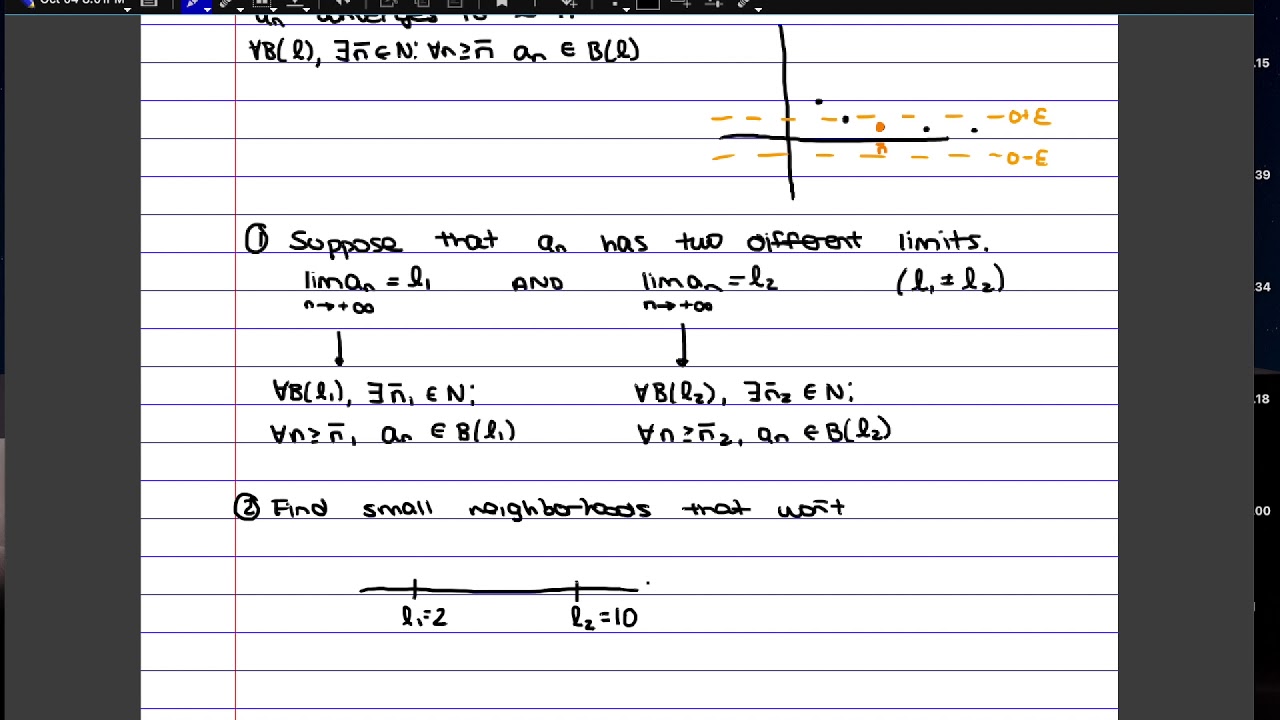 Oct 04 8:01PM
an converges to
∀B(l), ∃n̄ ∈ N: ∀n ≥ n̄ an ∈ B(l)
0+ε
n̄
0-ε
① Suppose that an has two different limits.
lim an = l1 AND lim an = l2 (l1 ± l2)
n→+∞ n→+∞
∀B(l1), ∃n̄1 ∈ N; ∀B(l2), ∃n̄2 ∈ N;
∀n ≥ n̄1 an ∈ B(l1) ∀n ≥ n̄2, an ∈ B(l2)
② Find small neighborhoods that won't
l1=2 l2=10
.15
39
34
.18
00